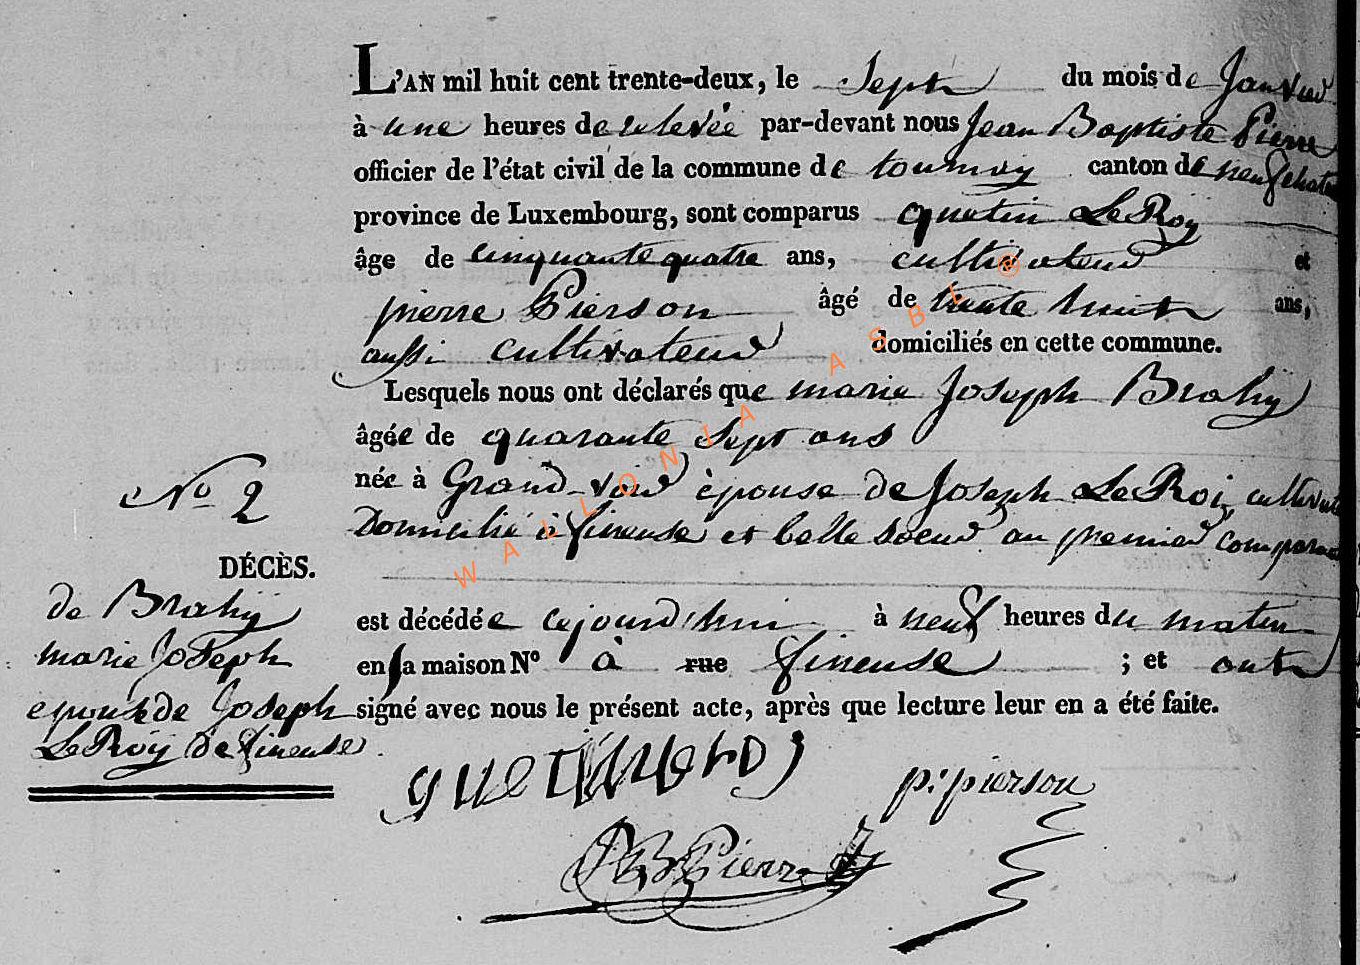 L'AN mil huit cent trente-deux, le Sept du mois de Janvier
à une heures de relevée par-devant nous Jean Baptiste Pierre
officier de l'état civil de la commune de tournay canton de neufchateau
province de Luxembourg, sont comparus quetin LeRoy
âge de cinquante quatre ans, cultivateur et
pierre Pierson âgé de trente huit ans,
aussi cultivateur domiciliés en cette commune.
Lesquels nous ont déclarés que marie Joseph Brahÿ
âgée de quarante Sept ans
née à Grand-voir épouse de Joseph LeRoi, cultivate
Domicilié à fineuse et belle soeur au premier comparan
N° 2
DÉCÈS.
de Brahÿ
marie Joseph
epouse de Joseph
LeRoÿ de fineuse.
est décédée cejourd'hui à neuf heures du matin
en sa maison N° à rue fineuse ; et ont
signé avec nous le présent acte, après que lecture leur en a été faite.
p: pierson
JB Pierre
WALLONIA ASBL ®